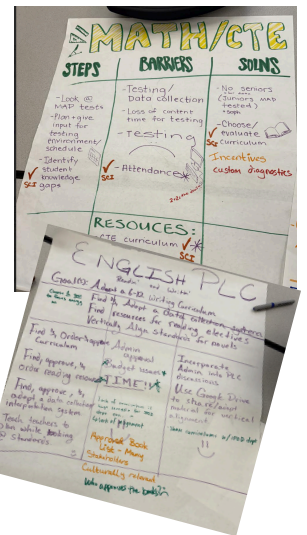 MATH/CTE
STEPS
-Look @
MAP tests
-Plan + give
input for
testing
environment/
schedule
-Identify
student
knowledge
gaps
SCI
BARRIERS
-Testing/
Data collection
-Loss of content
time for testing
-Testing
-Attendance*
SOLNS
-No seniors
(Juniors MAP
tested)
-Choose/
evaluate
curriculum
SCI
Incentives
custom diagnostics
RESOUCES:
CTE curriculum
SCI
ENGLISH PLC
Goal(s): Adopt a 6-12 Writing Curriculum
Find & Adopt a data collection system
Find resources for reading electives
Vertically Align Standards for novels
Find & Order
Curriculum
Find, approve, &
order reading resources
Find, approve, &
adopt a data collection
interpretation system
Teach teachers to
plan while looking
@ Standards
Admin
approval
Budget issues
TIME!!*
Approved Book
List - Many
Stakeholders
Culturally relevant
Who approves the books?
Incorporate
Admin into PLC
discussions
Use Google Drive
to share
for vertical
alignment